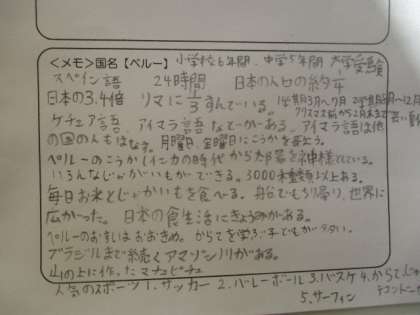 <メモ>国名【ペルー】 小学校6年間、中学5年間 大学受験
スペイン語 24時間 日本の人口の約
日本の3.4倍 リマに1/3すんでいる。 1学期3月~7月 2学期8月~12月
クリスマス前から2月末まで
ケチュア語、アイマラ語などがある、アイマラ語は他
の国の人もはなす。月曜日、金曜日にこうかを
ペルーのこうか(インカの時代から太陽を神様としている。
いろんなじゃがいもができる。3000種類以上ある。
毎日お米とじゃがいもを食べる。船でもち帰り、世界に
広がった。日本の食生活にきょうみがある。
ペルーのおすしはおおきめ。からてを学ぶ子どもが
ブラジルまで続くアマゾン川がある。
山の上に作ったマチュピチュ
人気のスポーツ 1.サッカー 2.バレーボール 3.バスケ 4.からて
5.サーフィン